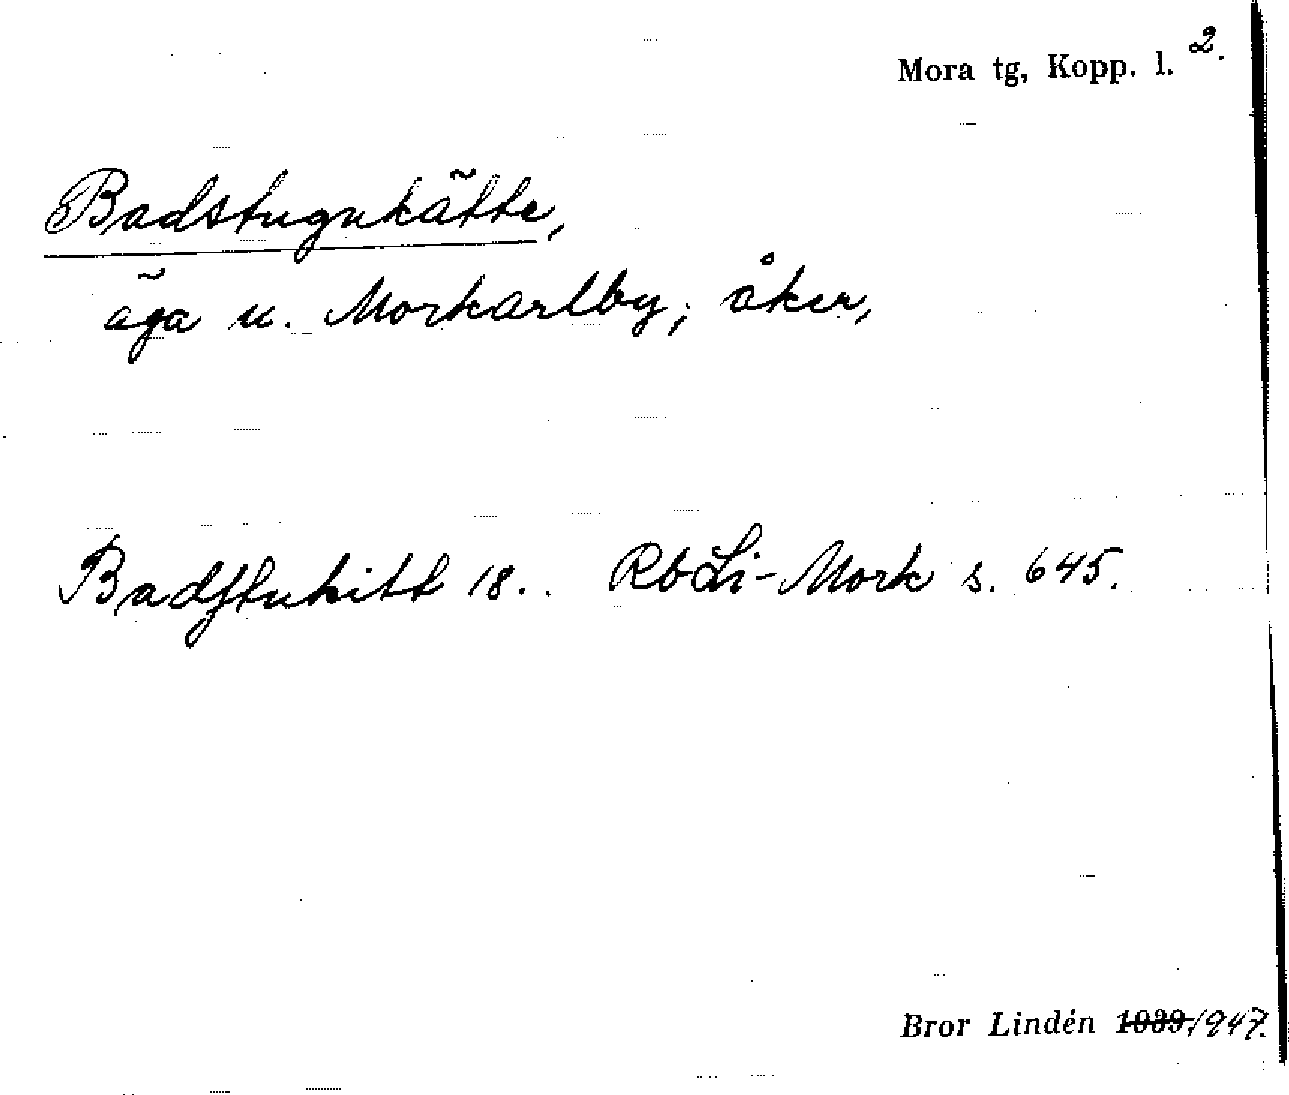 Mora tg, Kopp. l. 2.
Badstugukätte,
äga u. Morkarlby; åker,
Badstukitt 18.. RbLi-Mork s. 645.
Bror Lindén 1939, 1947.